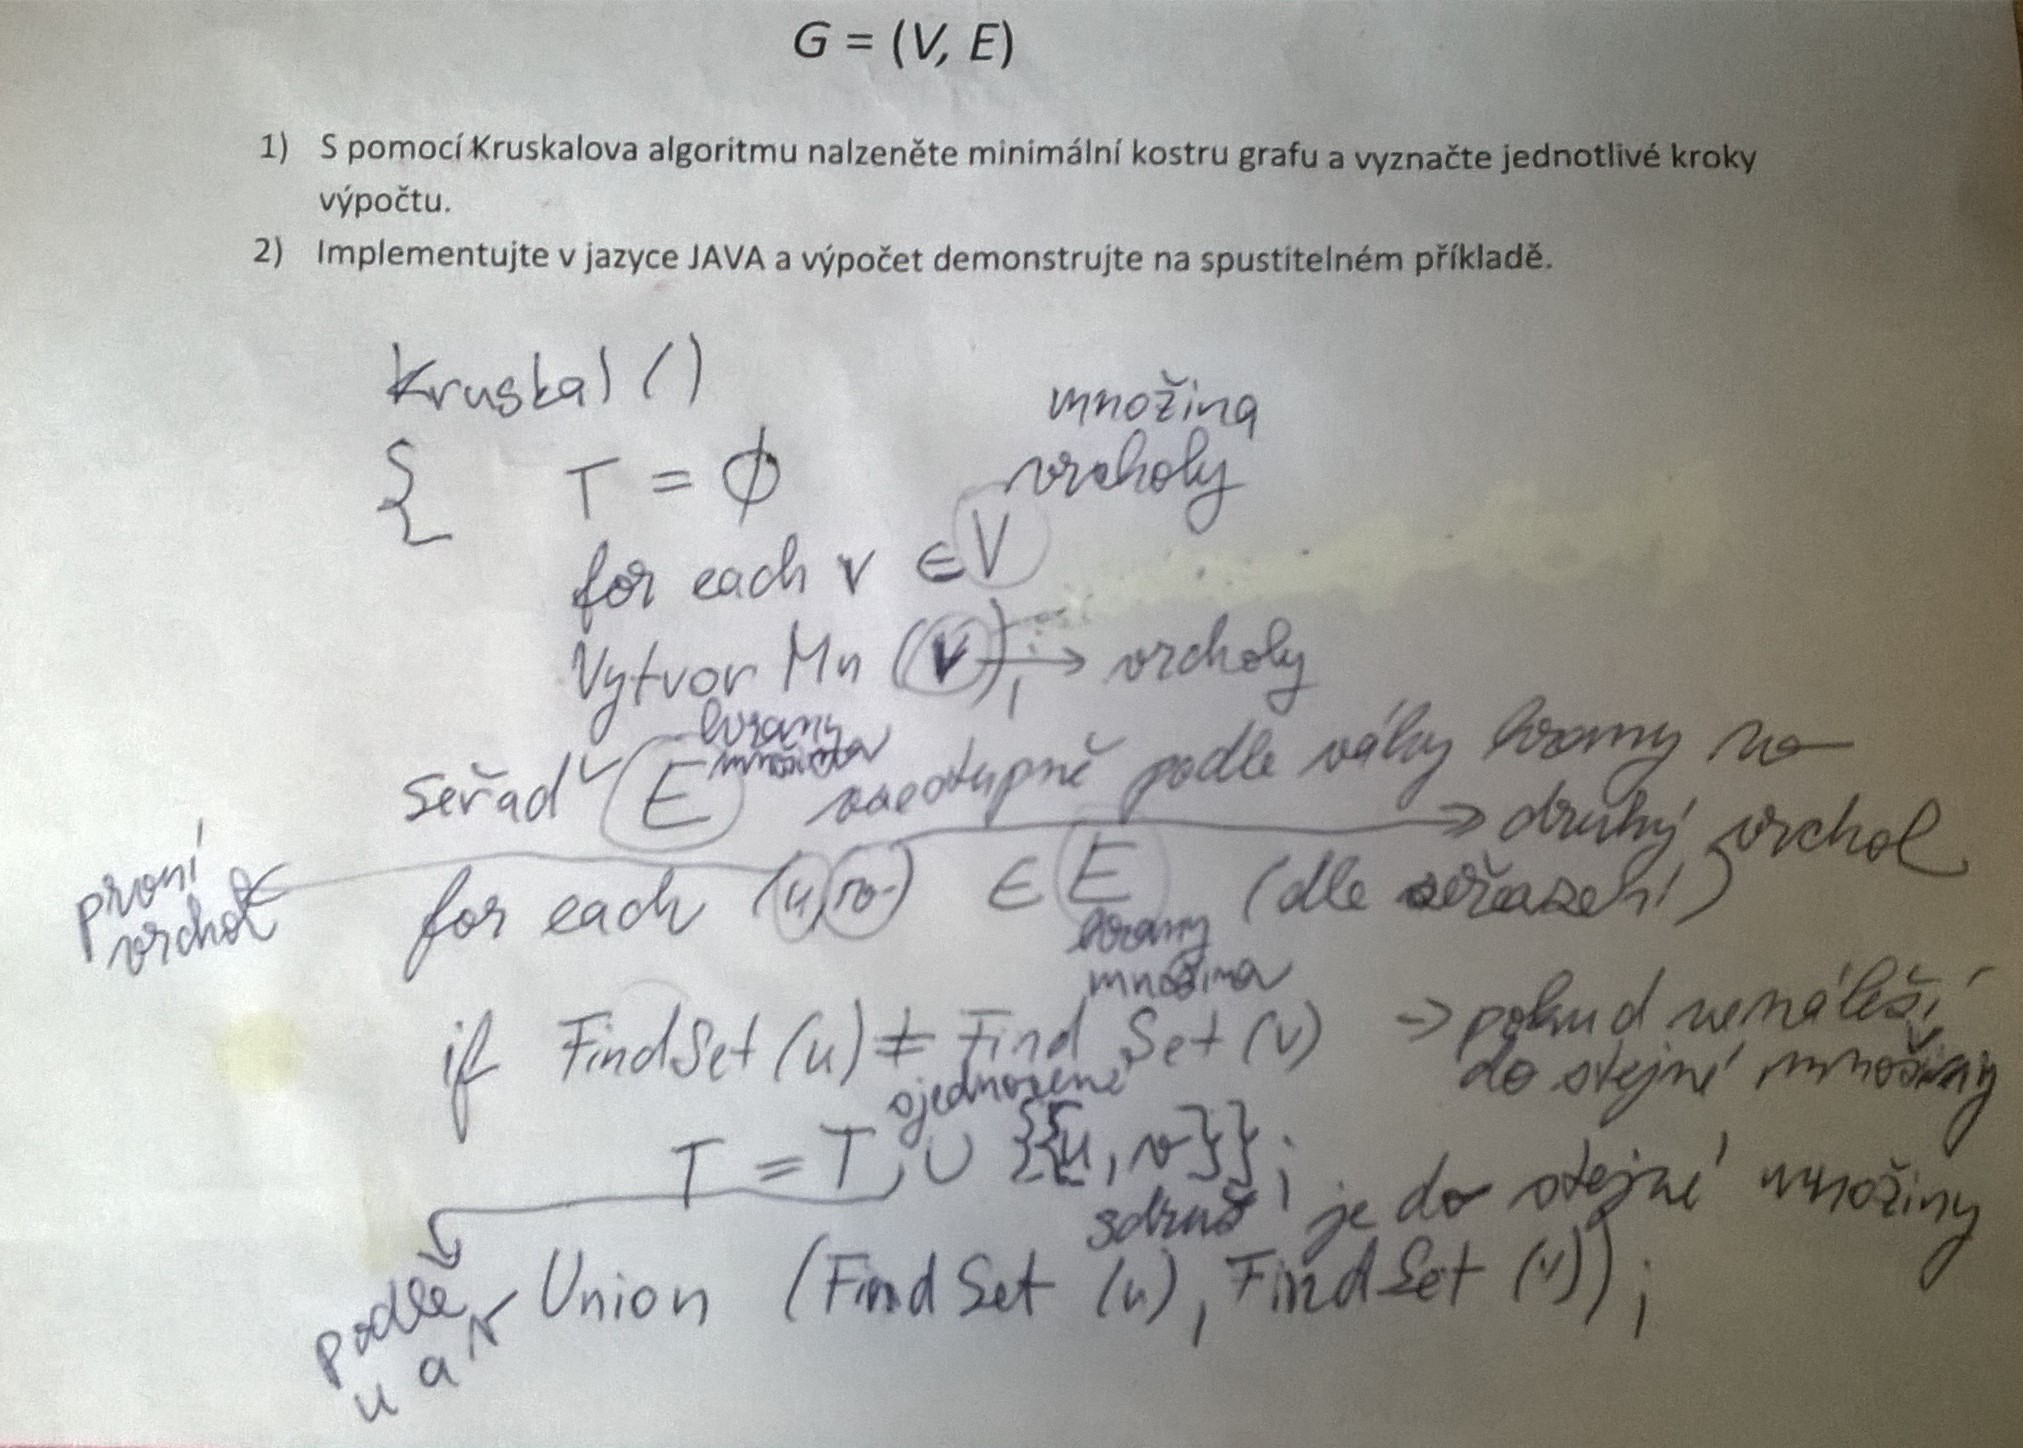 G = (V, E)
1) S pomocí Kruskalova algoritmu nalzeněte minimální kostru grafu a vyznačte jednotlivé kroky
výpočtu.
2) Implementujte v jazyce JAVA a výpočet demonstrujte na spustitelném příkladě.
Kruskal ()
množina
{ T = ∅
vrcholy
for each v ∈ V
Vytvor Mn (v); → vrcholy
hrany
množina
Seřaď E podle váhy hrany
→ druhý vrchol
první
vrchol
for each (u,v) ∈ E (dle seřazení)
hrany
množina
if FindSet (u) ≠ Find Set (v) → pokud nenáleší
do stejné množiny
sjednocení
T = T ∪ {{u, v}};
sdruž je do stejné množiny
podle
u a v
Union (Find Set (u), FindSet (v));